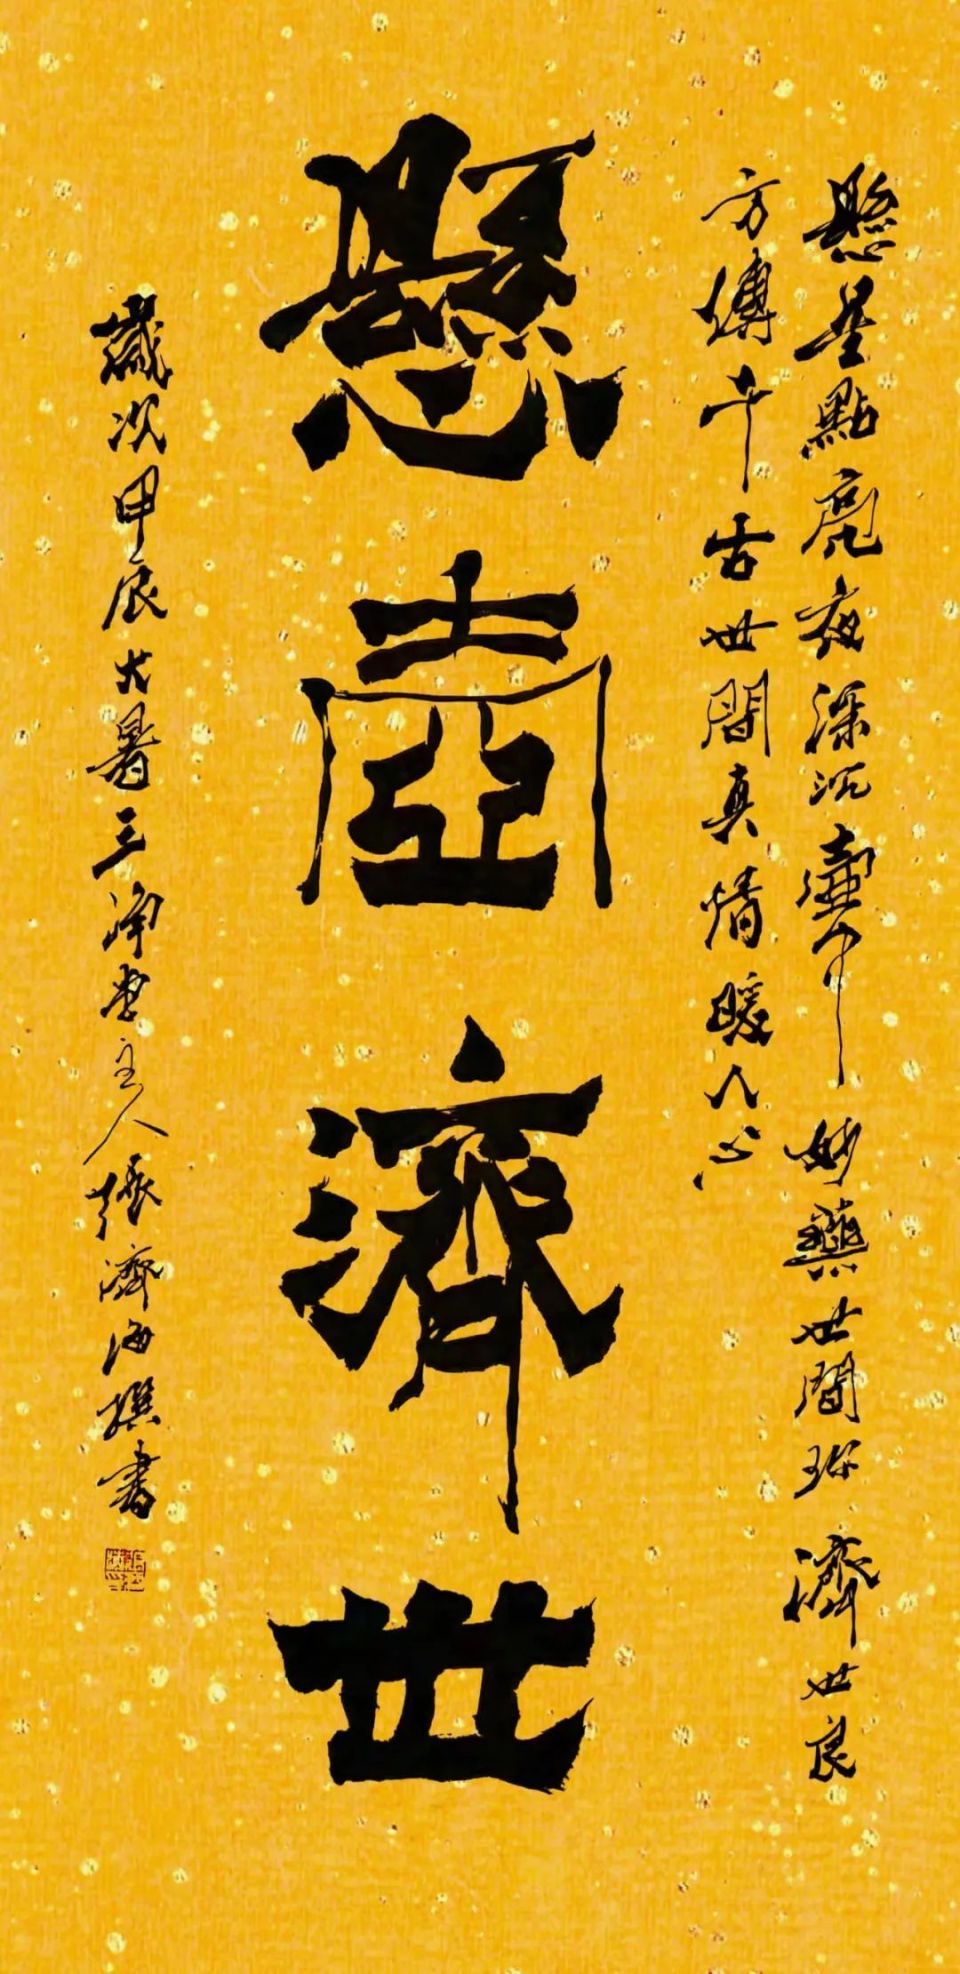 懸壺濟世
懸星點亮夜深沉壺中妙藥世間珍濟世良
方傳千古世間真情暖人心
歲次甲辰大暑三淨堂主人張濟海撰書